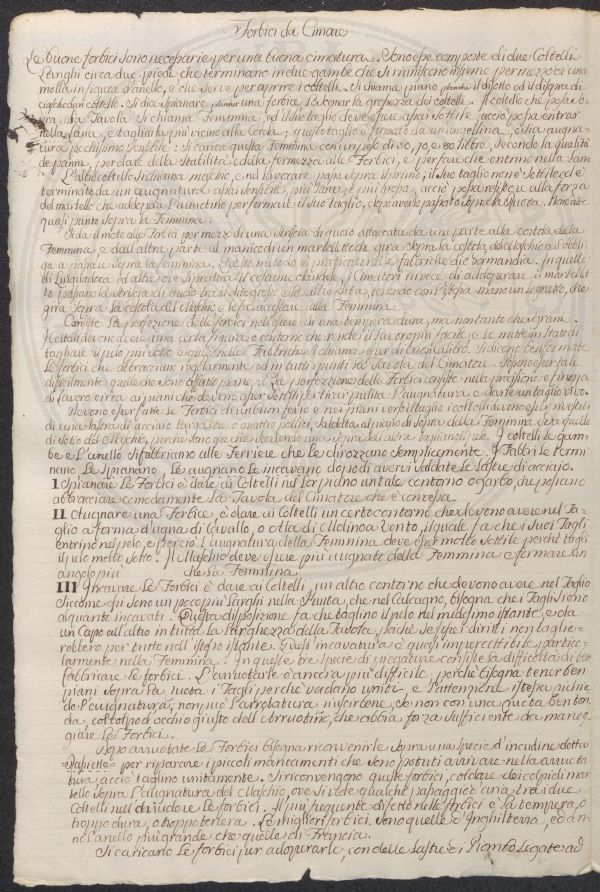 Forbici da Cimare
Le buone forbici sono necessarie per una buona cimatura. Sono esse composte di due Coltelli
Lunghi circa due piedi che terminano in due gambe che si riuniscono insieme per mezzo di una
molla in figura d'anello, e che serve per aprire i coltelli. Si chiama piano il disotto ed il disopra di
ciascheduno coltello. Si dice spianare una forbice, lo scemar la grossezza dei coltelli. Il coltello che posa so-
pra la Tavola si chiama Femmina, ed il suo taglio deve essere assai sottile, acciò possa entrar
nella lana, e tagliarla più vicino alla corda; questo taglio è formato da un
tura pochissimo sensibile: si carica questa Femmina con un peso di 60, 70, e 80 libre, secondo la qualità
de panni, per dare della stabilità e della fermezza alle Forbici, e per fare che entrino nella Lana
L'altro coltello si chiama maschio, e nel lavorare passa sopra il primo; il suo taglio non è sottile ed è
terminato da un augnatura assai sensibile, più larga, e più grossa, acciò possa resistere alla forza
del martello che adopera l'arruotino per formare il suo taglio, dopo averlo passato sopra la Ruota.
quasi punto sopra la Femmina.
Si dà il moto alle Forbici per mezzo di una striscia di quoio attaccata da una parte alla costola della
Femmina, e dall'altra parte al manico di un martelletto che gira sopra la costola del Maschio e l'obbli-
ga a passare sopra la femmina. Questo metodo è praticato nelle fabbriche di Normandia. In quelle
di Linguadoca ed altri, ove si pratica il costume olandese, i Cimatori invece di adoperare il martellet-
to passano la striscia di quoio tra il dito grosso e le altre dita, tenendo con l'istessa mano un legnetto, che
gira sopra la costola del Maschio e lo fa accostare alla Femmina
Consiste la perfezione delle forbici nell'essere di una tempera dura, ma non tanto che sgrani.
I Coltelli devono avere una certa figura, e contorno che rende il suo corpo facile, e le mette in stato di
tagliare il pelo più corto e uguale nelle Fabbriche si chiama esser di buon Calibro. Si dicono conformate
le forbici che abbracciano regolarmente ed in tutti i punti la Tavola del Cimatore. Possono esser tali
difficilmente quelle che sono affatto piane. La perfezione delle Forbici consiste nella precisione e finezza
di lavoro circa ai piani che devono esser sottili per ben pulita l'augnatura e dare un taglio vivo.
Devono esser fatte le Forbici di un buon ferro e nei piani verso il taglio i coltelli devono esser rivestiti
di una lastra di acciaio larga tre o quattro pollici, saldata al piano di sopra della Femmina ed a quello
di sotto del Maschio, perché sono gli che scorrendo uno sopra dell'altra tagliano il pelo. I coltelli le gam-
be e L'anello si fabbricano alle Ferriere che le dirozzano semplicemente. I Fabbri le termi-
nano le spianano, le augnano le incavano dopo di avervi saldate le Lastre di acciajo.
I Spianare le Forbici è dare ai Coltelli nel lor piano un tale contorno o garbo, che possano
abbracciare comodamente la Tavola del Cimatore che è convessa.
II O Augnare una Forbice, è dare ai Coltelli un certo contorno che devono avere nel Ta-
glio a forma d'ugna di Cavallo, o Ala di Molino a Vento, il quale fa che i suoi Tagli
entrino nel pelo, e perciò l'augnatura della Femmina deve esser molto sottile perché tagli
il pelo molto sotto. Il Maschio deve essere più augnato della Femmina e formare un
angolo più della Femmina.
III Incavare le Forbici è dare ai Coltelli un altro contorno che devono avere nel Taglio
Siccome essi sono un poco più larghi nella Punta, che nel Calcagno, bisogna che i Tagli sieno
alquanto incavati. Questa disposizione fa che taglino il pelo nel medesimo istante, e da
un Capo all'altro in tutta la Larghezza della Tavola, sicchè se fosser diritti non taglie-
rebbero per tutto nell'istesso istante. Quest'incavatura è quasi impercettibile partico-
larmente nella Femmina. In queste tre specie di piegature consiste la difficoltà di ben
fabbricare le forbici. L'arruotarle è ancora più difficile, perchè bisogna tener ben
piani sopra la ruota i Tagli perchè vadano uniti, e l'attenzione istessa richie-
de l'augnatura, non può l'arrotatura riuscir bene, se non con una ruota ben ton-
da, col tolpo d'occhio giusto dell'Arruotino, che abbia forza sufficiente da maneg-
giare le Forbici.
Dopo arruotate le Forbici bisogna riconvenirle sopra una specie d'incudine detta
per riparare i piccoli mancamenti che sono potuti arrivare nella arruota-
tura, acciò taglino unitamente. Si riconvengono queste forbici, col dare dei colpi di mar
tello sopra L'augnatura del Maschio, ove si vede qualche passaggio d'aria tra i due
Coltelli nel chiudere le forbici. Il più frequente difetto nelle forbici è la tempera, o
troppo dura, o troppo tenera. Le migliori forbici, sono quelle d'Inghilterra, ed an-
no l'anello più grande che quelle di Francia.
Si caricano le forbici per adoperarle, con delle lastre di Piombo legate ad